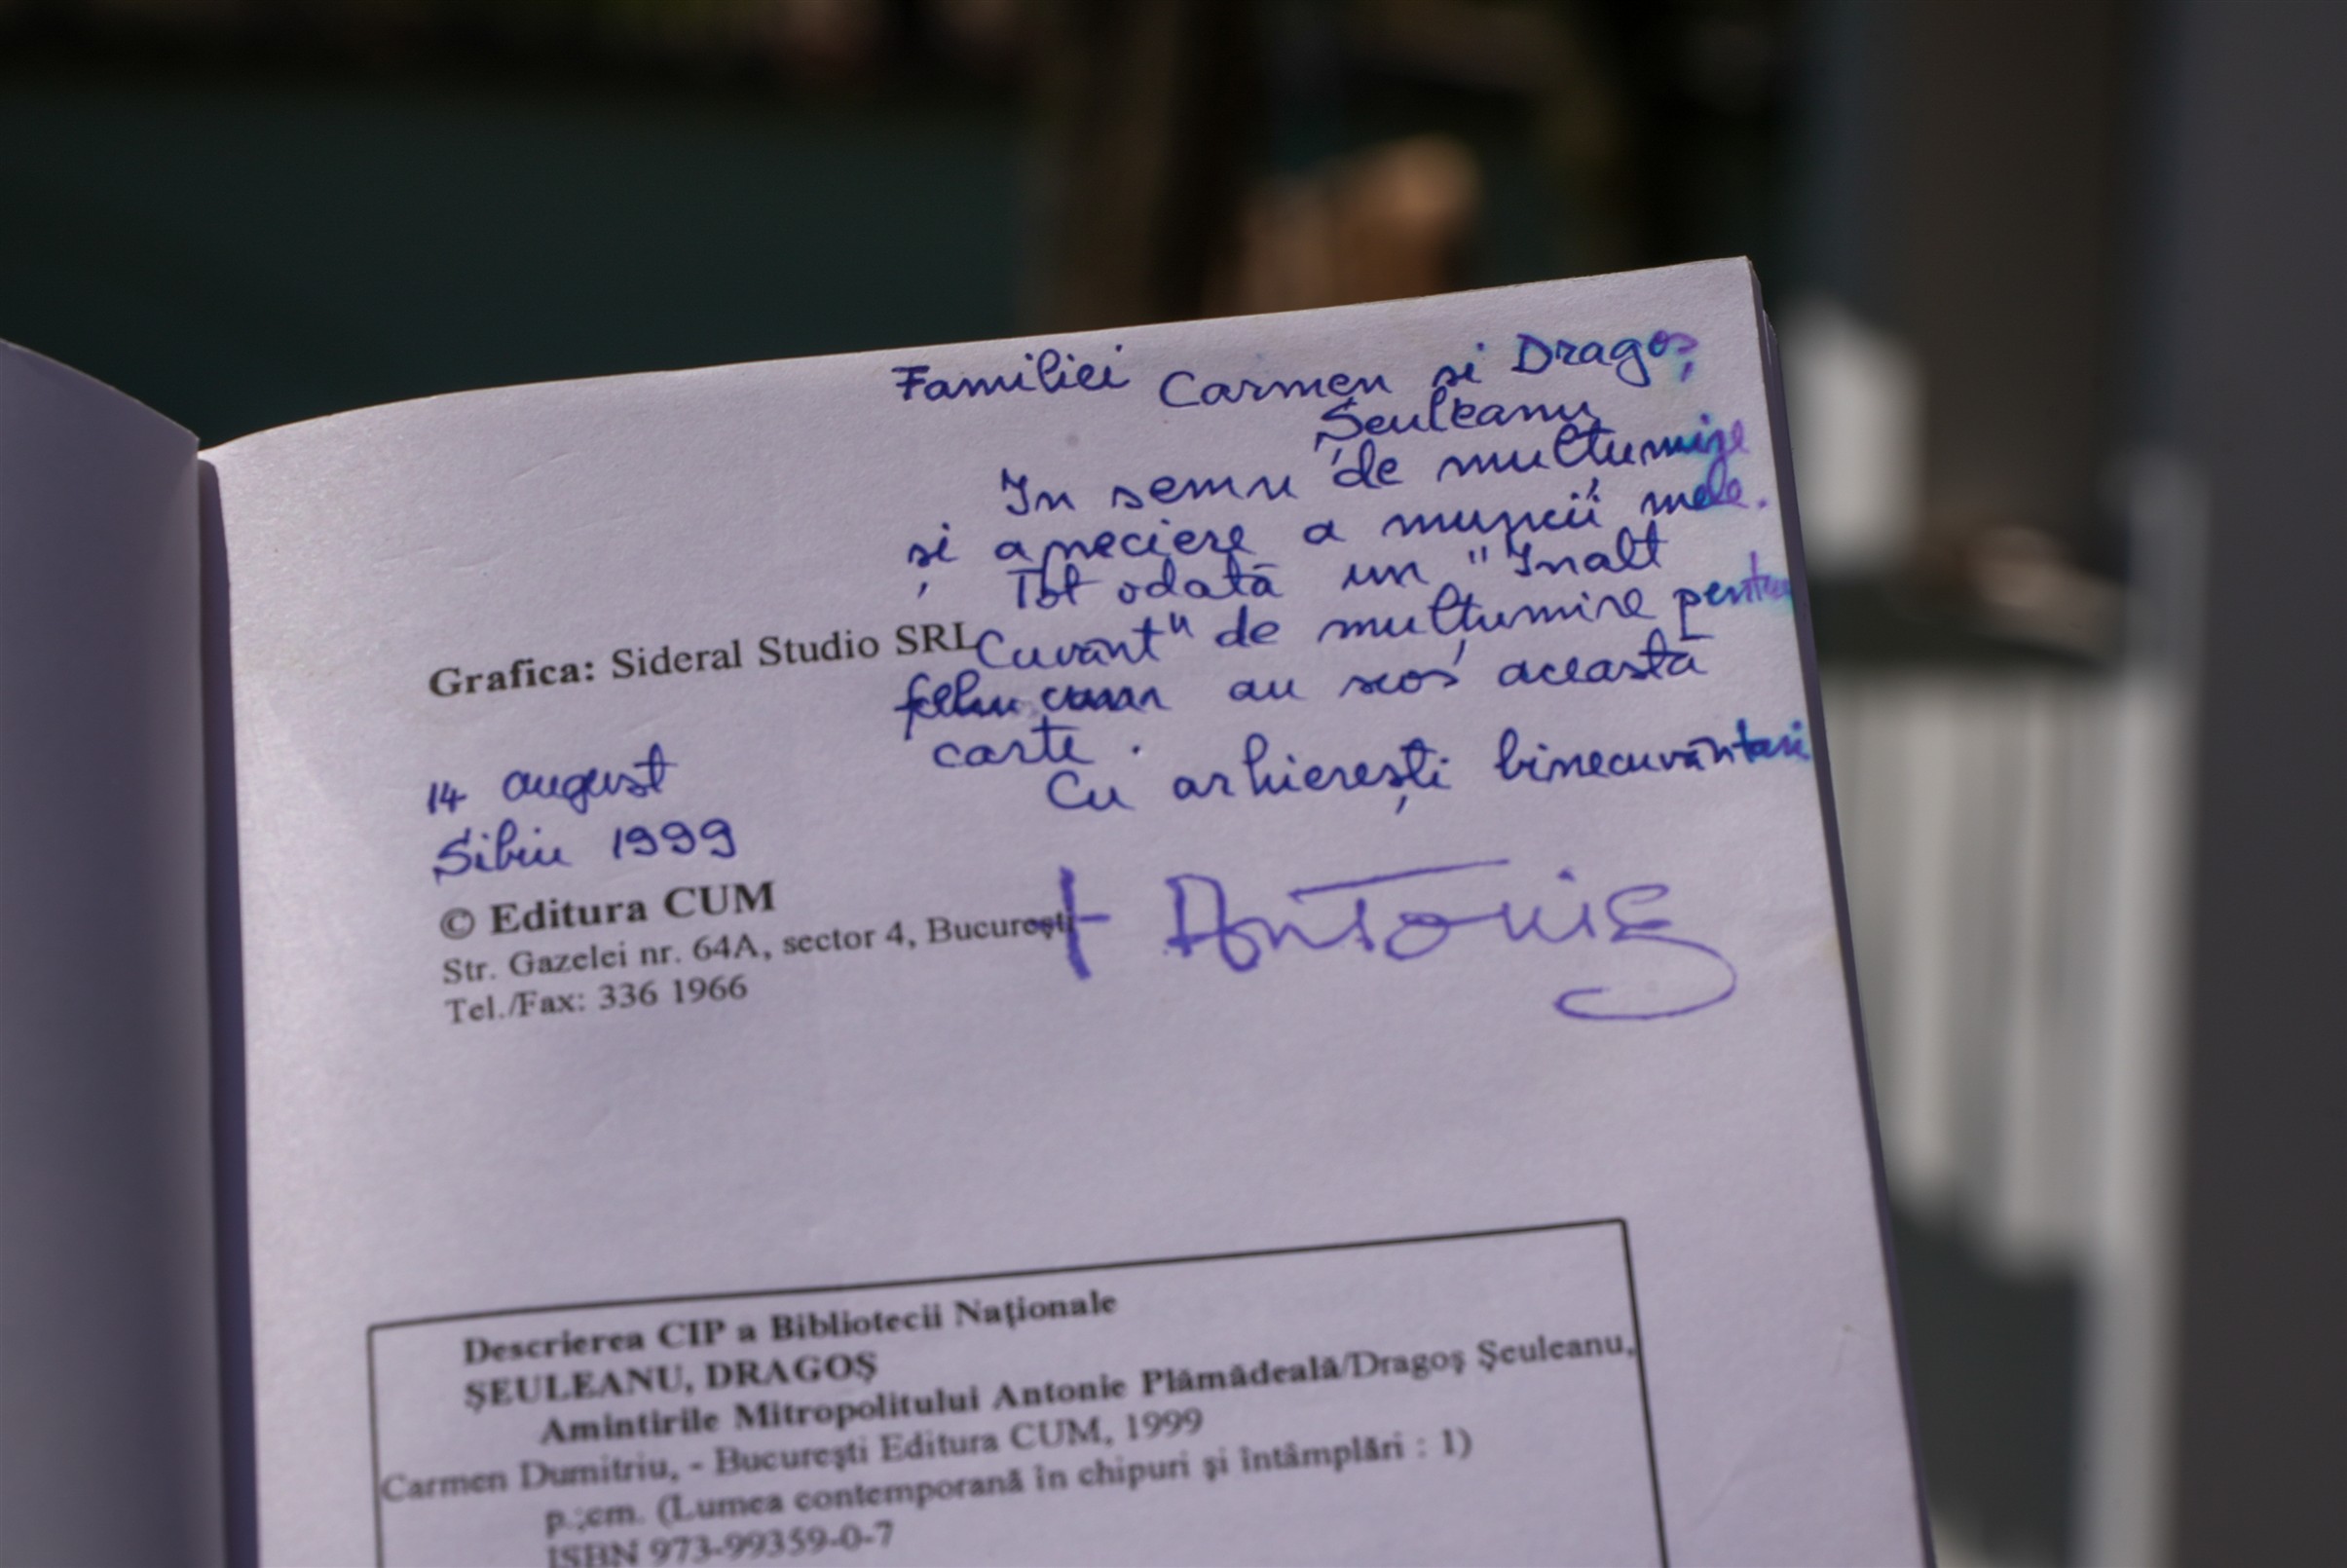 Familiei Carmen si Dragoș
Șeuleanu
In semn de mulțumire
și apreciere a muncii mele.
Tot odată un "Inalt
Cuvânt" de mulțumire pentru
felul cum au scos această
carte.
Cu arhierești binecuvântari
† Antonie
Grafica: Sideral Studio SRL
14 august
Sibiu 1999
© Editura CUM
Str. Gazelei nr. 64A, sector 4, București
Tel./Fax: 336 1966
Descrierea CIP a Bibliotecii Naţionale
ŞEULEANU, DRAGOŞ
Amintirile Mitropolitului Antonie Plămădeală/Dragoş Şeuleanu,
Carmen Dumitriu, - Bucureşti Editura CUM, 1999
p.;cm. (Lumea contemporană în chipuri şi întâmplări : 1)
ISBN 973-99359-0-7